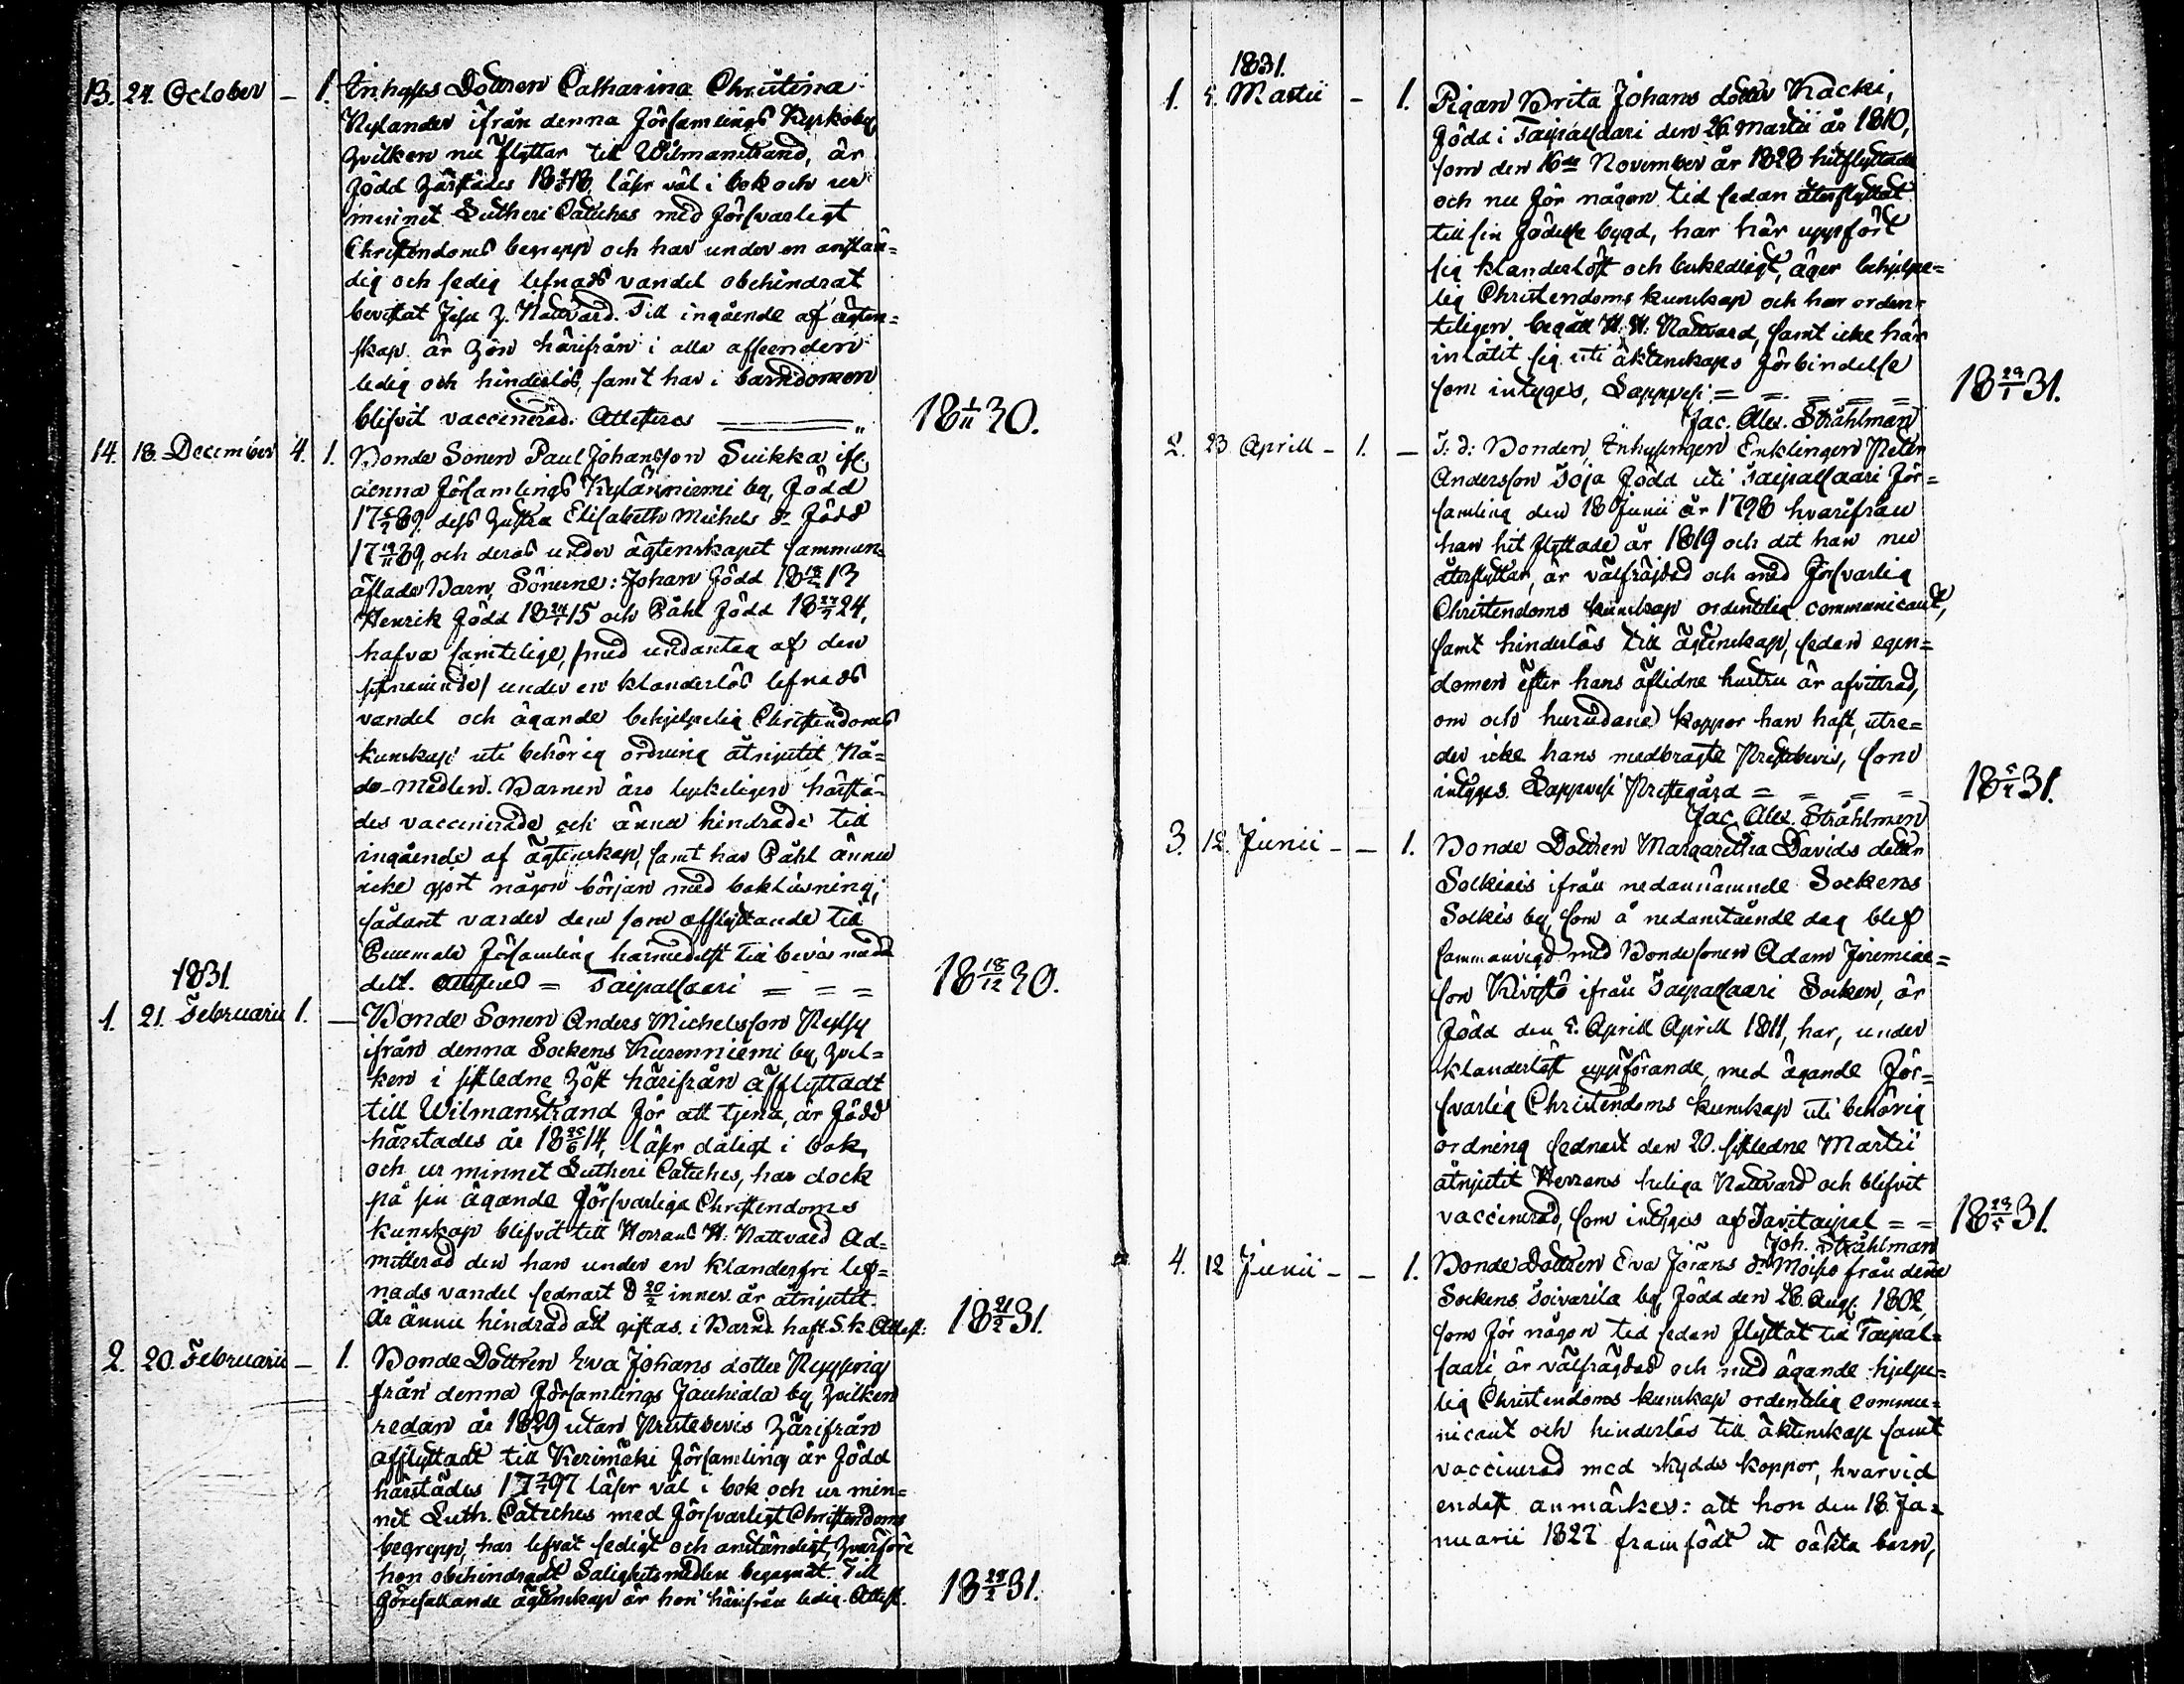 13. 24. October — 1. Inhyses Dottren Catharina Christina
Nylander ifrån denna Församlings Kyrkoby,
hvilken nu flyttar till Wilmanstrand, är
född härstädes 18 18, läser väl i bok och ur
minnet Lutheri Catches med försvarligt
Christendoms begrepp och har under en anstän-
dig och sedig lefnads vandel obehindrat
bevistat Jesu H. Nattvard. Till ingående af ägten-
skap är hon härifrån i alla afseenden
ledig och hinderlös, samt har i barndomen
blifvit vaccinerad. Attesteras 18 1/11 30.
14. 18. December 4. 1. Bonde Sonen Paul Johansson Suikka ifr.
denna församlings Kyläniemi by, född
17 89, dess hustru Elisabeth Michels dr född
17 89, och deras under ägtenskapet samman-
aflade Barn, Sönerne: Johan född 18 13
Henrik född 18 15 och Påhl född 18 24,
hafva samtelige, /med undantag af den
sistnämnde/ under en klanderlös lefnads
vandel och ägande behjelpelig Christendoms
kunskap uti behörig ordning åtnjutit Nå-
de-Medlen. Barnen äro lyckeligen härstä-
des vaccinerade och ännu hindrade till
ingående af ägtenskap, samt har Påhl ännu
icke gjort någon början med bokläsning;
sådant varder dem som afflyttande till
Puumala församling härmedelst till bevis med-
delt. Attesteras = Taipalsaari = = = 18 18/12 30.
1831.
1. 21. Februarii 1. — Bonde Sonen Anders Michelsson
ifrån denna Sockens Kurenniemi by, hvil-
ken i sistledne höst härifrån afflyttadt
till Wilmanstrand för att tjena, är född
härstades år 18 14, läser dåligt i bok,
och ur minnet Lutheri Catches, har dock
på sin ägande försvarliga Christendoms
kunskap blifvit till Herrans H. Nattvard Ad-
mitterad den han under en klanderfri lef-
nads vandel sednast d 20/2 innev. år åtnjutit.
Är ännu hindrad att giftas. i Barnd. haft S. k. Attest: 18 21/2 31.
2. 20. Februarii — 1. Bonde Dottren Eva Johans dotter
från denna församlings Jauhiala by, hvilken
redan år 1829 utan Prestebevis härifrån
afflyttadt till Kerimäki församling är född
härstädes 17 97 läser väl i bok och ur min-
net Luth. Catches med försvarligt Christendoms
begrepp, har lefvat sedigt och anständigt, hvarföre
hon obehindradt Salighetsmedlen begagnat. Till
förefallande ägtenskap är hon härifrån ledig. Attest. 18 /2 31.
1831.
1. 5. Martii — 1. Pigan Brita Johans dotter Kacki,
född i Taipalsaari den 26 Martii år 1810,
som den 16de November år 1828 hitflyttade
och nu för någon tid sedan återflyttat
till sin födelse bygd, har här uppfört
sig klanderlöst och beskedligt, äger behjelpe-
lig Christendoms kunskap och har orden-
teligen begått H: H: Nattvard, samt icke här
inlåtit sig uti äktenskaps förbindelse
som intyges, Lappvesi = = = = = 18 29/1 31.
Jac. Alex. Stråhlman
2. 23 Aprill — 1. — F: d: Bonden, Inhysingen Enklingen Petter
Andersson Soja född uti Taipalsaari för-
samling den 18 Junii år 1798 hvarifrån
han hit flyttade år 1819 och dit han nu
återflyttar, är välfräjdad och med försvarlig
Christendoms kunskap ordentelig communicant,
samt hinderlös till ägtenskap, sedan egen-
domen efter hans aflidne hustru är afvittrad,
om och hurudane koppor han haft, utre-
der icke hans medbragte Prestbevis, som
intyges. Lappvesi Prestegård = = = = 18 31.
Jac. Alex. Stråhlman
3. 12. Junii — — 1. Bonde Dottren Margaretha Davids dotter
Solkiais ifrån nedannämnde Sockens
Solkis by, som å nedanstående dag blef
sammanvigd med Bondesonen Adam Jeremiae-
son Kivistö ifrån Taipalsaari Socken, är
född den 5. Aprill Aprill 1811, har, under
klanderlöst uppförande, med ägande för-
svarlig Christendoms kunskap uti behörig
ordning sednast den 20. sistledne Martii
åtnjutit Herrans heliga Nattvard och blifvit
vaccinerad, som intyges af Savitaipal = = 18 31.
Joh. Stråhlman
4. 12 Junii — — 1. Bonde Dottren Eva Jörans dr Moiso från denna
Sockens Soivarila by, född den 28. Aug. 1802,
som för någon tid sedan flyttat till Taipal-
saari, är välfrägdad och med ägande hjelpe-
lig Christendoms kunskap ordentelig commu-
nicant och hinderlös till äktenskap samt
vaccinerad med skydds koppor, hvarvid
endast anmärkes: att hon den 18. Ja-
nuarii 1827 framfödt ett oäkta barn,